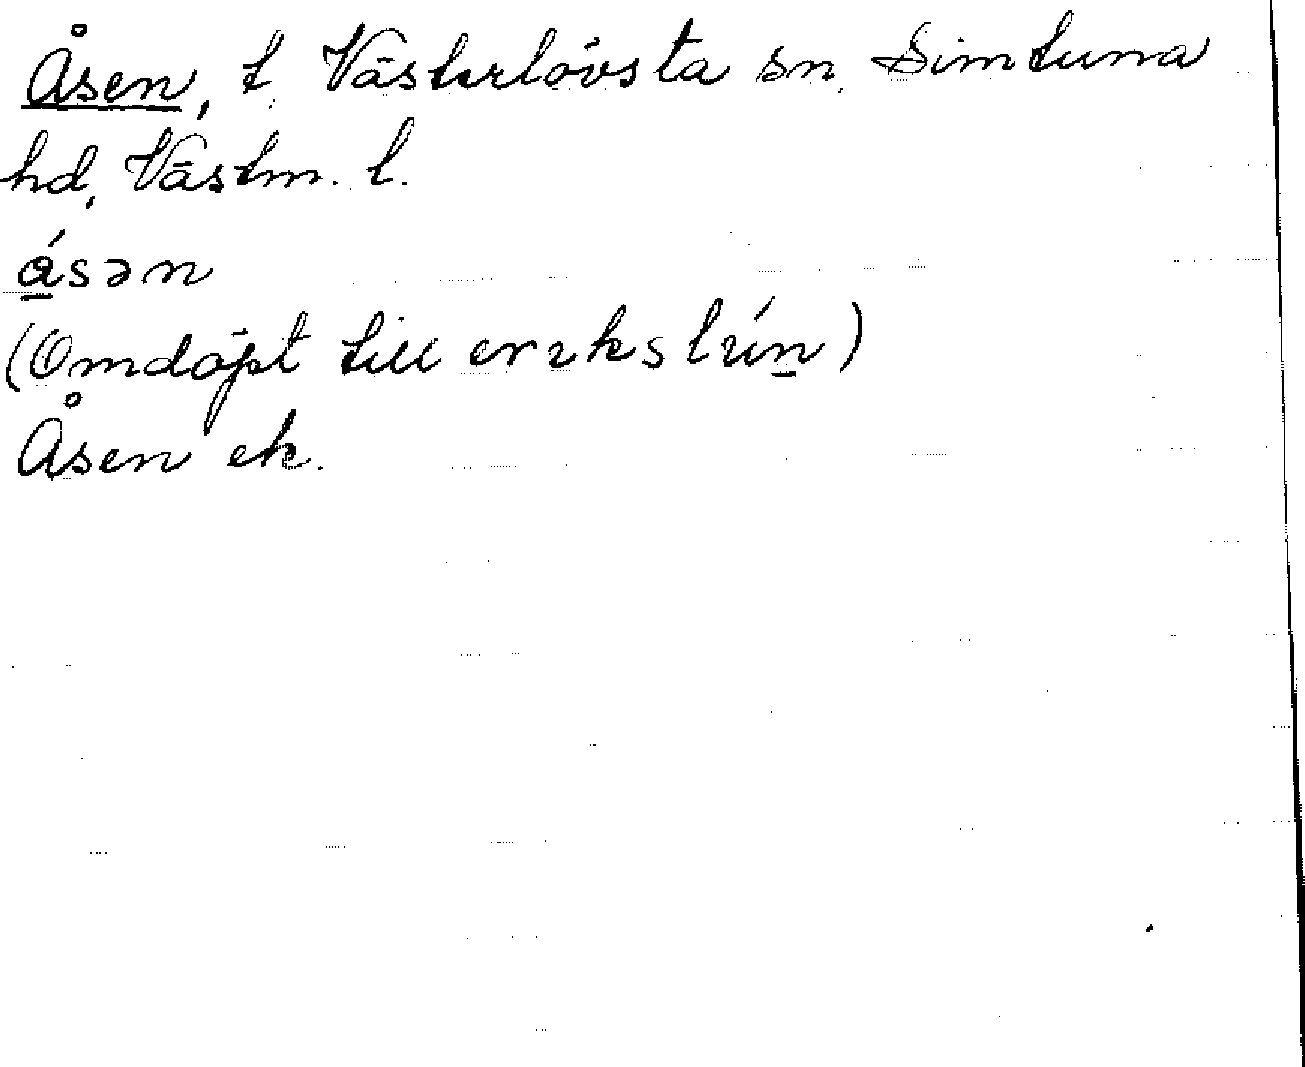 Åsen, t. Västerlövsta sn, Simtuna
hd, Västm. l.
ásən
(Omdöpt till erıkslún)
Åsen ek.